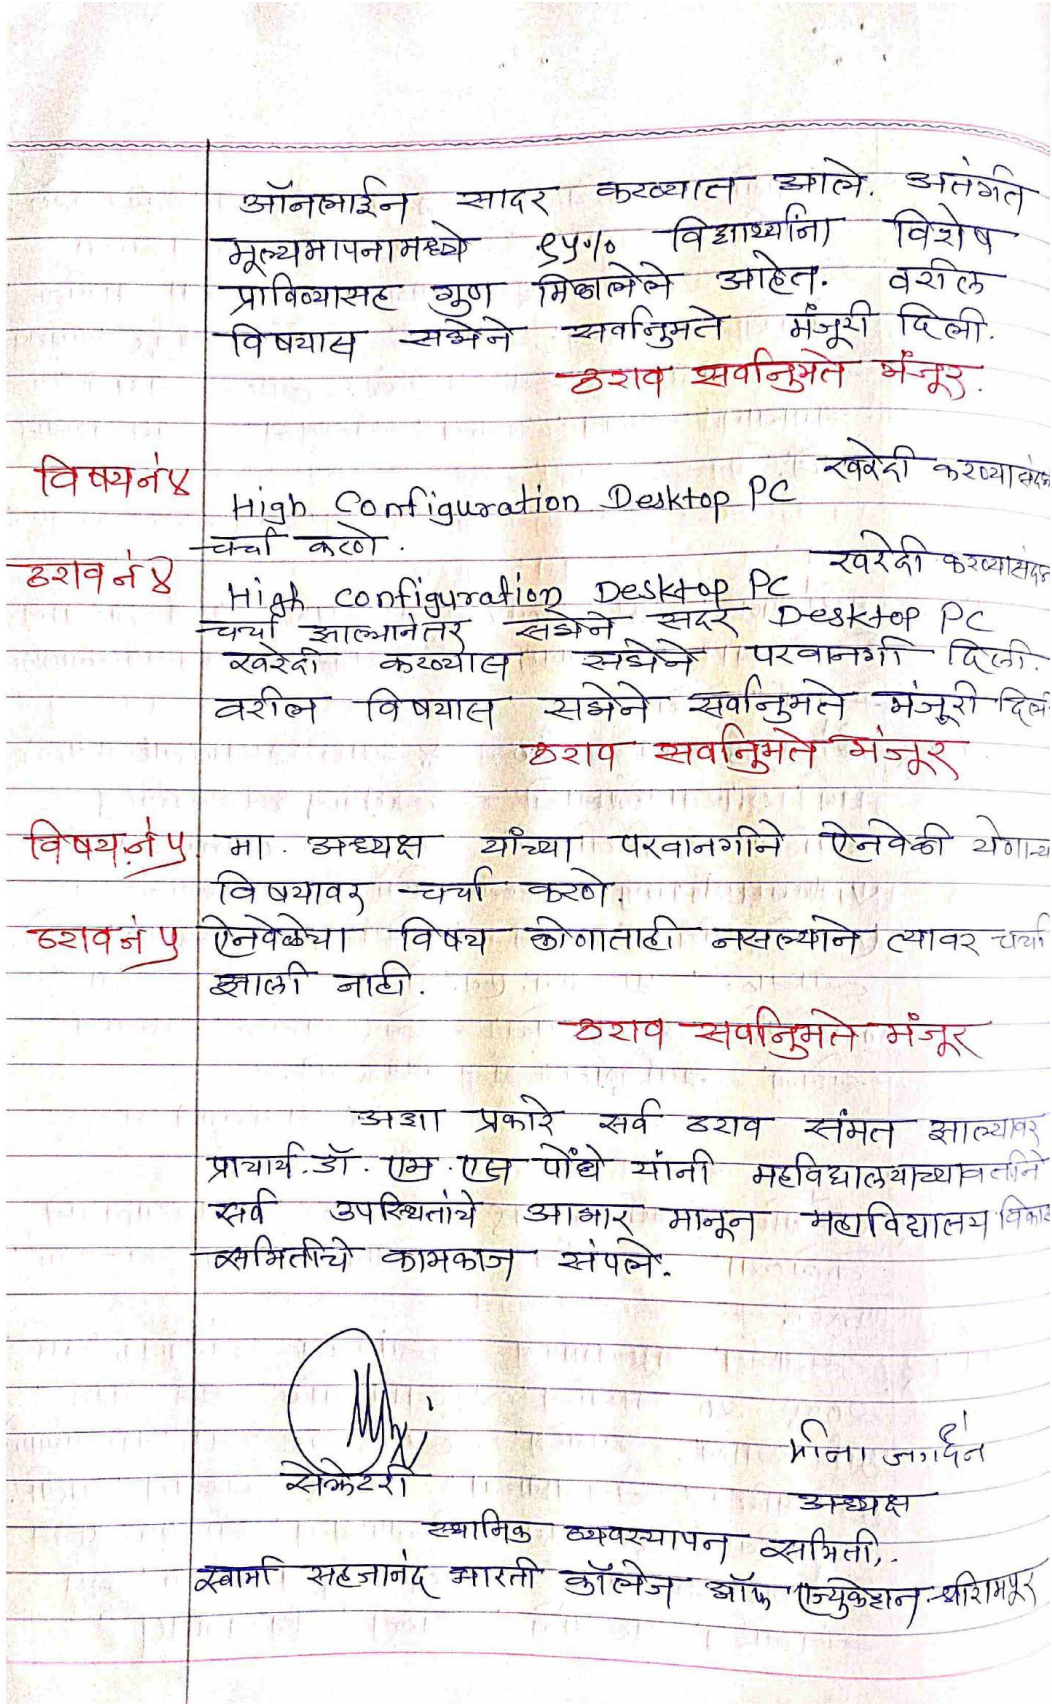 ऑनलाईन सादर करण्यात आले. अतंर्गत
मूल्यमापनामध्ये ९५% विद्यार्थ्यांना विशेष
प्राविण्यासह गुण मिळालेले आहेत. वरील
विषयास सभेने सर्वानुमते मंजूरी दिली.
ठराव सर्वानुमते मंजूर.
विषय नं ४ High Configuration Desktop PC खरेदी करण्यासंदर्भ
चर्चा करणे.
ठराव नं ४ High configuration Desktop PC खरेदी करण्यासंदर्भ
चर्चा झाल्यानंतर सभेने सदर Desktop PC
खरेदी करण्यास सभेने परवानगी दिली.
वरील विषयास सभेने सर्वानुमते मंजूरी दिली
ठराव सर्वानुमते मंजूर
विषय नं ५ मा. अध्यक्ष यांच्या परवानगीने ऐनवेळी येणाऱ्या
विषयावर चर्चा करणे.
ठराव नं ५ ऐनवेळेचा विषय कोणताही नसल्याने त्यावर चर्चा
झाली नाही.
ठराव सर्वानुमते मंजूर
अशा प्रकारे सर्व ठराव संमत झाल्यावर
प्राचार्य. डॉ. एम. एस पोंधे यांनी महविद्यालयाच्यावतीने
सर्व उपस्थितांचे आभार मानून महाविद्यालय विकास
समितीचे कामकाज संपले.
मीना जगधने
सेक्रेटरी
अध्यक्ष
स्थानिक व्यवस्थापन समिती,
स्वामी सहजानंद भारती कॉलेज ऑफ एज्युकेशन-श्रीरामपूर